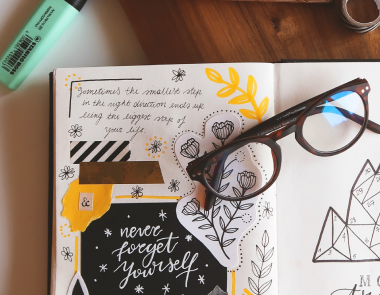 Sometimes the smallest step
in the right direction ends up
being the biggest step of
your life.
&
never
forget
yourself